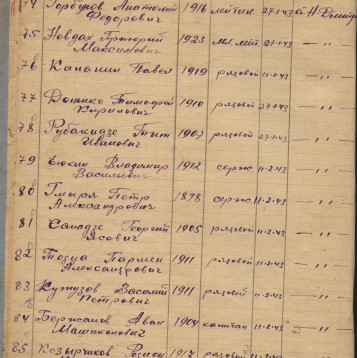 74 Горбунов Анатолий 1916 лейтен. 27-1-43
Федорович
75 Невдах Григорий 1923 мл лейт 27-1-43 —"—
Максимович
76 Капанин Павел 1919 рядовой 11-2-43 —"—
77 Доцико Тимофей 1910 рядовой 27-1-43 —"—
Кирилович
78 Рубакидзе Тит 1907 рядовой 27-1-43 —"—
Иванович
79 Владимир 1912 серж. 11-2-43 —"—
Васильевич
80 Гмыря Петр 1898 серж. 11-2-43 —"—
Александрович
81 Санадзе Георгий 1905 рядовой 11-2-43 —"—
Ясович
82 Тодуа Пармен 1911 рядовой 11-2-43 —"—
Александрович
83 Кутузов Василий 1911 рядовой 11-2-43 —"—
Петрович
84 Бержанов Аван 1904 капитан 11-2-43 —"—
85 Козырчиков 1917 рядовой 11-2-43 —"—